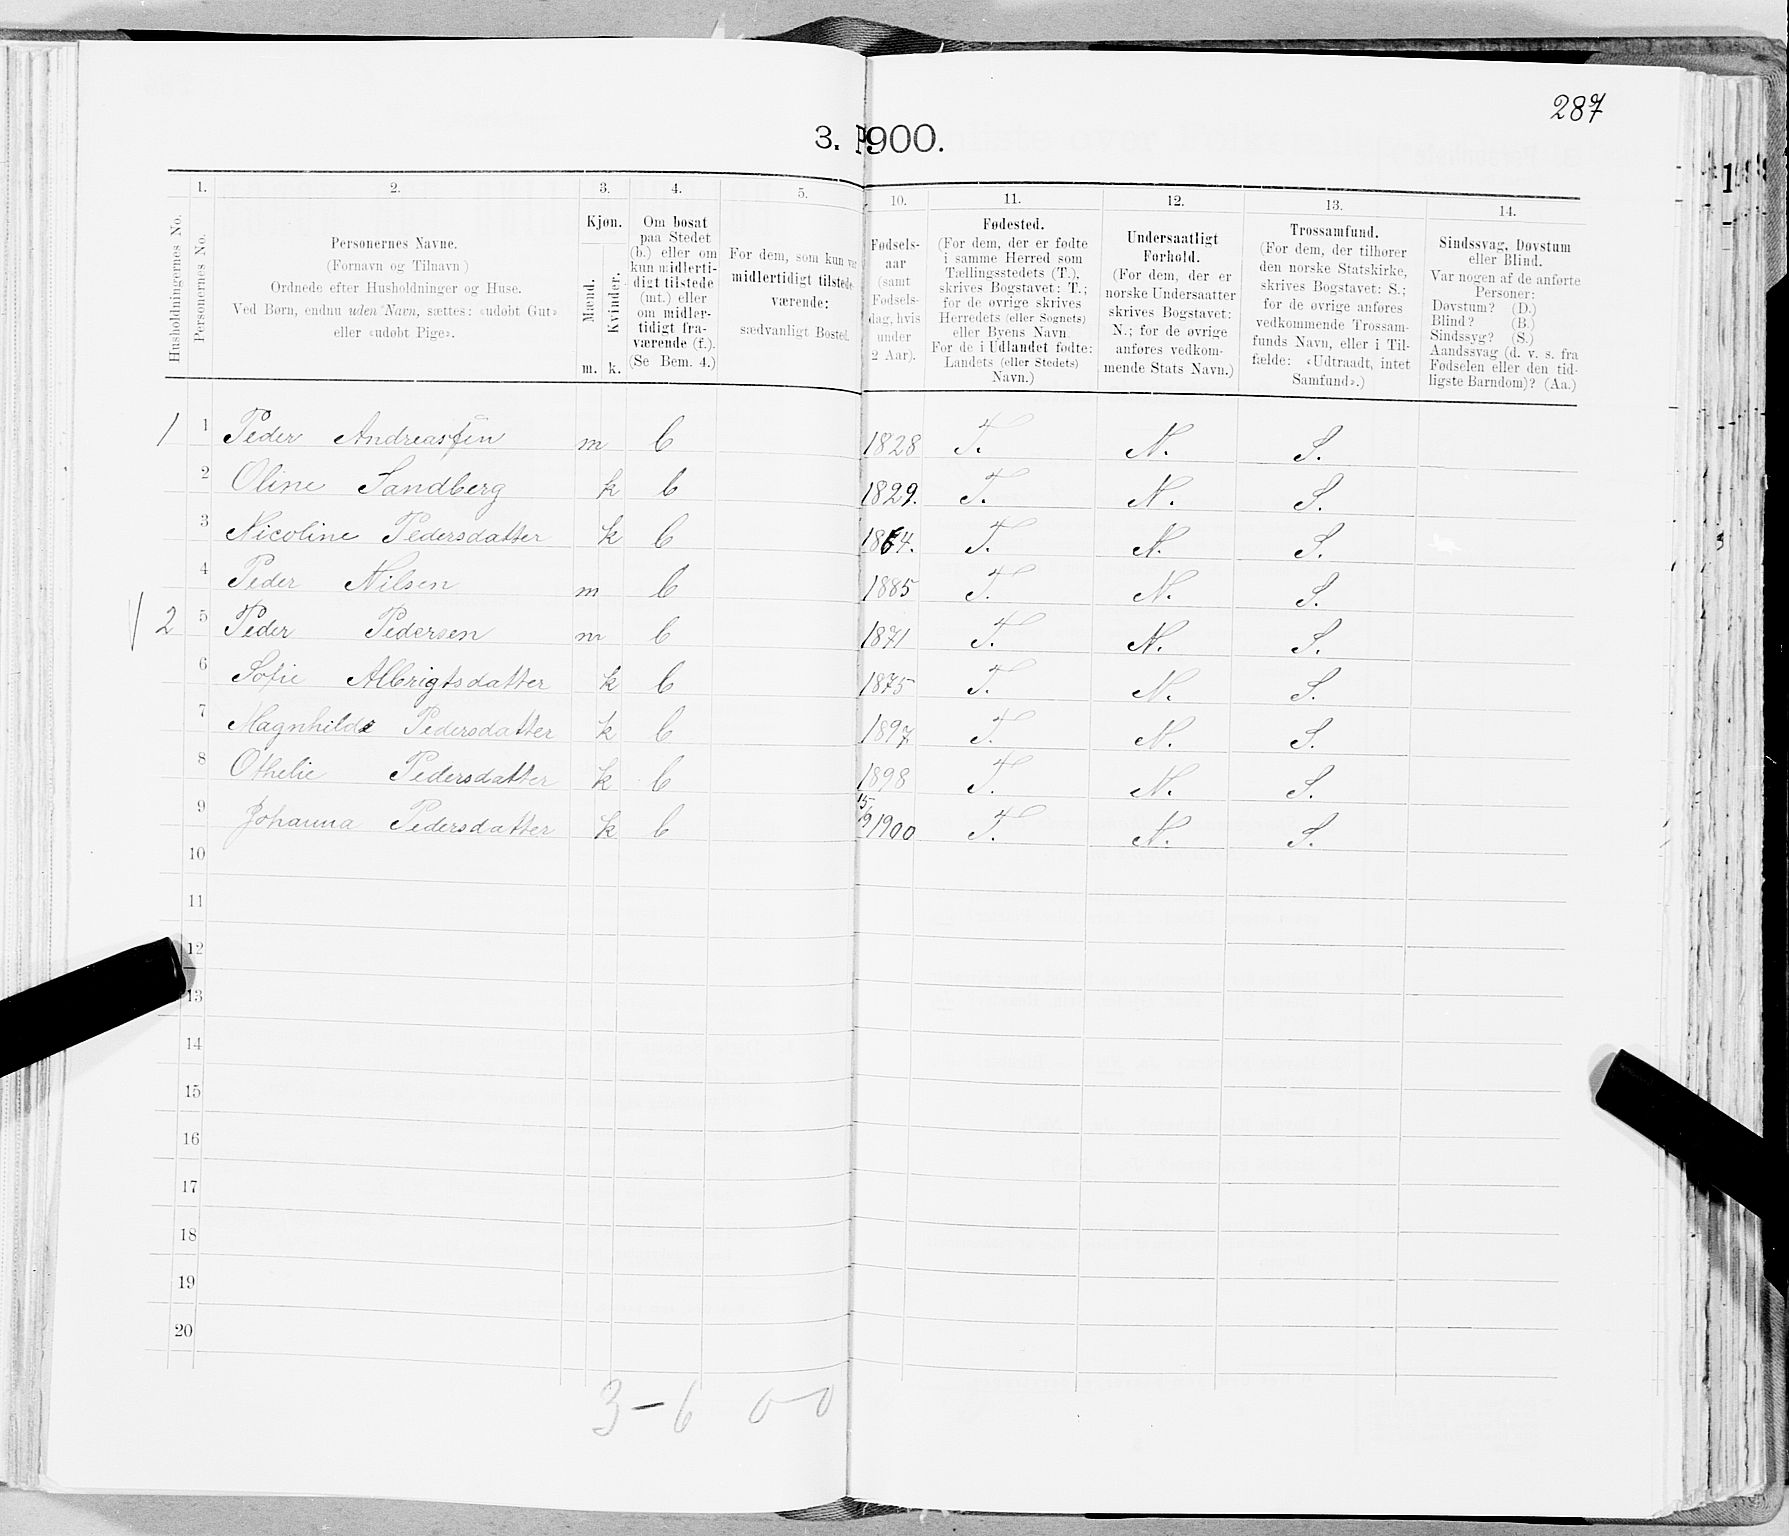 287
3. P900.
1. 2. 3. 4. 5. 10. 11. 12. 13. 14.
Husholdningernes No.
Personernes No.
Personernes Navne.
(Fornavn og Tilnavn)
Ordnede efter Husholdninger og Huse.
Ved Børn, endnu uden Navn, sættes: «udøbt Gut»
eller «udøbt Pige».
Kjøn.
Mænd.
Kvinder.
m. k.
Om bosat
paa Stedet
(b.) eller om
kun midlerti-
digt tilstede
(mt.) eller
om midler-
tidigt fra-
værende (f.).
(Se Bem. 4.)
For dem, som kun var
midlertidigt tilstede-
værende:
sædvanligt Bosted.
Fødsels-
aar
(samt
Fødsels-
dag, hvis
under
2 Aar).
Fødested.
(For dem, der er fødte
i samme Herred som
Tællingsstedets (T.),
skrives Bogstavet: T.;
for de øvrige skrives
Herredets (eller Sognets)
eller Byens Navn
For de i Udlandet fødte:
Landets (eller Stedets)
Navn.)
Undersaatligt
Forhold.
(For dem, der er
norske Undersaatter
skrives Bogstavet:
N.; for de øvrige
anføres vedkom-
mende Stats Navn.)
Trossamfund.
(For dem, der tilhører
den norske Statskirke,
skrives Bogstavet: S.;
for de øvrige anføres
vedkommende Trossam-
funds Navn, eller i Til-
fælde: «Udtraadt, intet
Samfund».)
Sindssvag, Døvstum
eller Blind.
Var nogen af de anførte
Personer:
Døvstum? (D.)
Blind? (B.)
Sindssyg? (S.)
Aandssvag (d. v. s. fra
Fødselen eller den tid-
ligste Barndom)? (Aa.)
1 1 Peder Andreassen m b 1828 T. N. S.
2 Oline Sandberg k b 1829. T. N. S.
3 Nicoline Pedersdatter k b 1864. T. N. S.
4 Peder Nilsen m b 1885 T. N. S.
2 5 Peder Pedersen m b 1871 T. N. S.
6 Sofie Albrigtsdatter k b 1875 T. N. S.
7 Magnhilde Pedersdatter k b 1897 T. N. S.
8 Othelie Pedersdatter k b 1898 T. N. S.
9 Johanna Pedersdatter k b 15/9 1900 T. N. S.
10
11
12
13
14
15
16
17
18
19
20
3-6 0-0